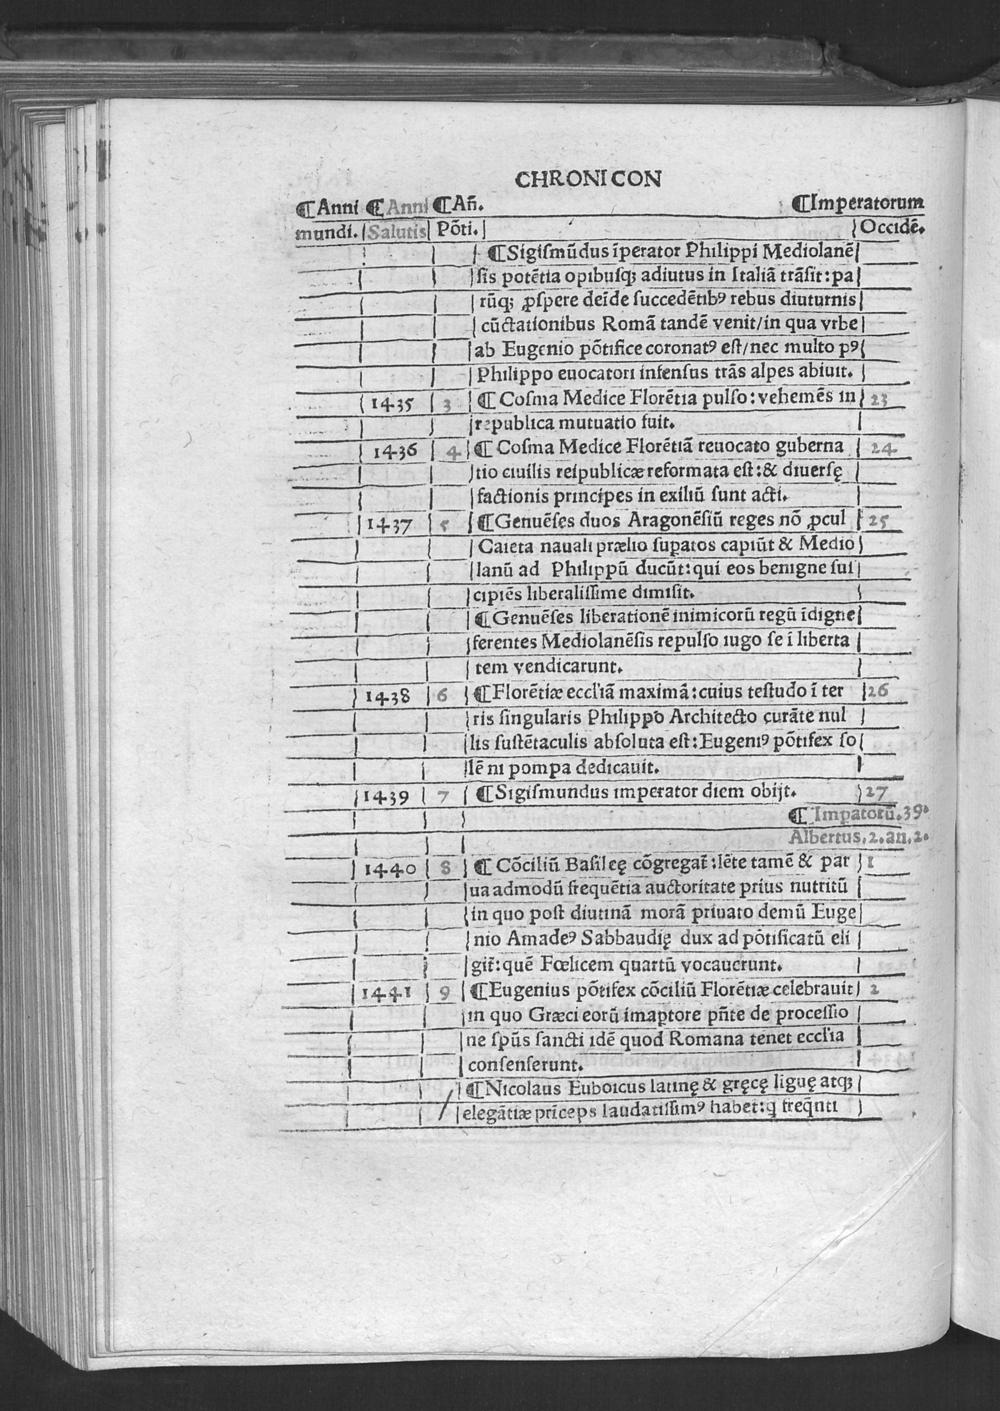 CHRONICON
¶Anni ¶Anni ¶Añ. ¶Imperatorum
mundi. Salutis Põti. Occidẽ.
¶Sigiſmũdus ĩperator Philippi Mediolanẽ
ſis potẽtia opibuſq; adiutus in Italiã trãſit: pa
rũq; ꝓſpere deĩde ſuccedẽtibꝰ rebus diuturnis
cũctationibus Romã tandẽ venit/in qua vrbe
ab Eugenio põtifice coronatꝰ eſt/nec multo pꝰ
Philippo euocatori infenſus trãs alpes abiuit.
1435 3 ¶Coſma Medice Florẽtia pulſo: vehemẽs in 23
republica mutuatio fuit.
1436 4 ¶Coſma Medice Florẽtiã reuocato guberna 24
tio ciuilis reipublicæ reformata eſt: & diuerſę
factionis principes in exiliũ ſunt acti.
1437 5 ¶Genuẽſes duos Aragonẽſiũ reges nõ ꝓcul 25
Caieta nauali prælio ſupatos capiũt & Medio
lanũ ad Philippũ ducũt: qui eos benigne ſuſ
cipiẽs liberaliſſime dimiſit.
¶Genuẽſes liberationẽ inimicorũ regũ ĩdigne
ferentes Mediolanẽſis repulſo iugo ſe ĩ liberta
tem vendicarunt.
1438 6 ¶Florẽtiæ eccľiã maximã: cuius teſtudo ĩ ter 26
ris ſingularis Philippo Architecto curãte nul
lis ſuſtẽtaculis abſoluta eſt: Eugeniꝰ põtifex ſo
lẽ ni pompa dedicauit.
1439 7 ¶Sigiſmundus imperator diem obijt. 27
¶Impatorũ. 39.
Albertus. 2. an. 2.
1440 8 ¶Cõciliũ Baſileę cõgregat̃: lẽte tamẽ & par 1
ua admodũ frequẽtia auctoritate prius nutritũ
in quo poſt diutinã morã priuato demũ Euge
nio Amadeꝰ Sabbaudię dux ad põtificatũ eli
git̃: quẽ Fœlicem quartũ vocauerunt.
1441 9 ¶Eugenius põtifex cõciliũ Florẽtiæ celebrauit 2
in quo Græci eorũ imaptore pñte de proceſſio
ne ſpũs ſancti idẽ quod Romana tenet eccľia
conſenſerunt.
¶Nicolaus Euboicus latinę & gręcę liguę atq;
elegãtiæ prĩceps laudatiſſimꝰ habet: q̃ freq̃nti